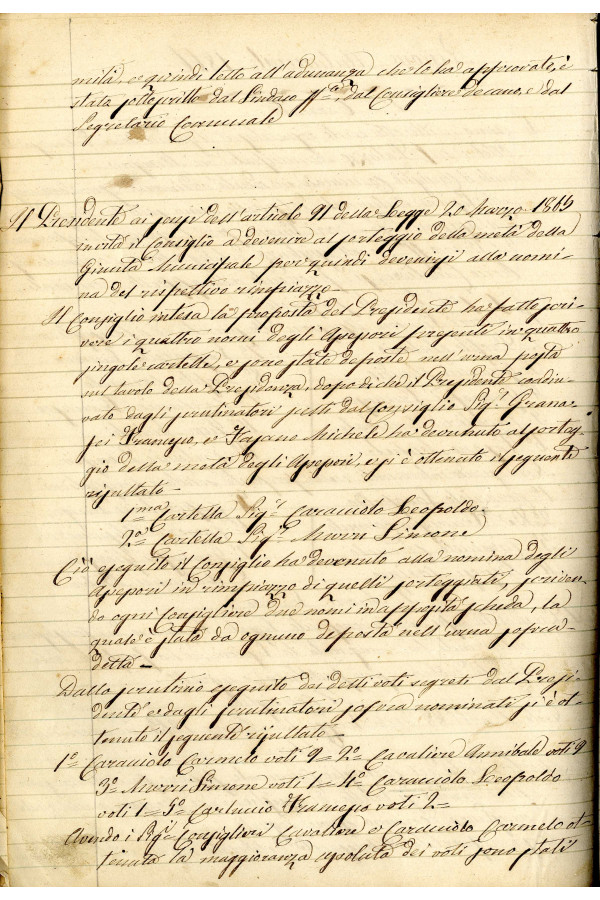 mità, e quindi letto all'adunanza che lo ha approvato, è
stato sottoscritto dal Sindaco ff.ª dal Consigliere decano, e dal
Segretario Comunale
Il Presidente ai sensi dell'articolo 91 della Legge 20 Marzo 1865
invita il Consiglio a devenire al sorteggio della metà della
Giunta Municipale per quindi devenirsi alla nomi-
na del rispettivo rimpiazzo -
Il Consiglio intesa la proposta del Presidente ha fatto scri-
vere i quattro nomi degli Assessori presenti in quattro
singole cartelle, e sono state deposte nell'urna posta
sul tavolo della Presidenza, dopo di che il Presidente coadiu-
vato dagli scrutinatori scelti dal Consiglio Sig.ri Grana-
fei Francesco, e Fajano Michele ha devenuto al sorteg-
gio della metà degli Assessori, e si è ottenuto il seguente
risultato -
1ma Cartella Sig.r Caracciolo Leopoldo
2a Cartella Sig.r Murri Simone
Ciò eseguito il Consiglio ha devenuto alla nomina degli
Assessori in rimpiazzo di quelli sorteggiati, scriven-
do ogni Consigliere due nomi in apposita scheda, la
quale è stata da ognuno deposta nell'urna sopra-
detta -
Dallo scrutinio eseguito dei detti voti segreti dal Presi-
dente e dagli scrutinatori sopra nominati si è ot-
tenuto il seguente risultato -
1º Caracciolo Carmelo voti 9 = 2º Cavaliere Annibale voti 9
3º Murri Simone voti 1 = 4º Caracciolo Leopoldo
voti 1 = 5º Carluccio Francesco voti 2 =
Avendo i Sig.ri Consiglieri Cavaliere e Caracciolo Carmelo ot-
tenuta la maggioranza assoluta dei voti sono stati